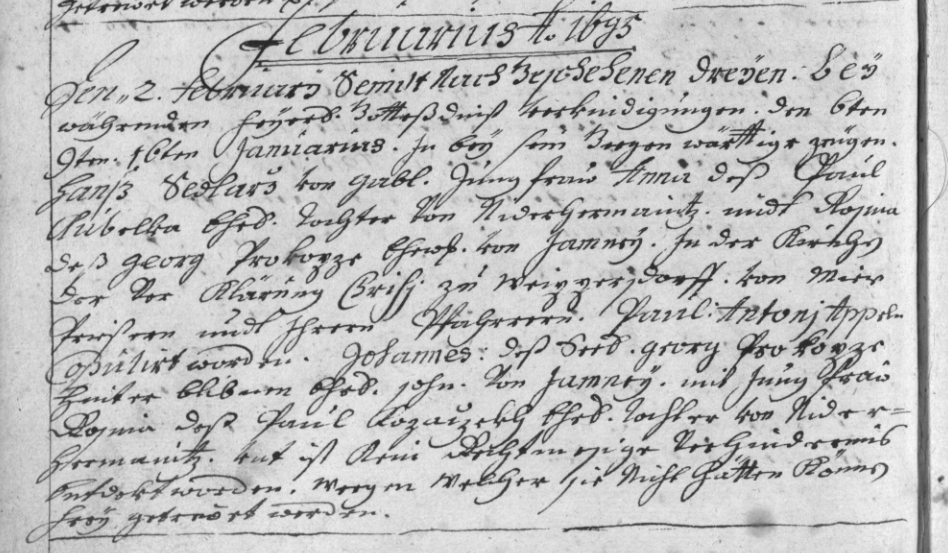 getrewet werden
Februarius Ao 1695
Den 2. Februarÿ Seindt Nach Beschehenen dreÿen. beÿ
währenden feyerd. Gottesdinst verkindigungen. den 6ten
9ten. 16ten Januarius. In beÿ sein Gegen wärttige zeügen.
Hanß Sedlarz von Gabl. Jungfraw Anna deß Paul
Kubelka Ehed. Tochter von Niderhermanitz. undt Rosina
deß Georg Prokopze Ehew. von Jamneÿ. In der Kirchen
der Ver Klärung Christj zu Weipperßdorff. von Mier
Priestern undt Ihrern Pfahrrern. Paul. Antonj Appeln
Copulirt worden. Johannes: deß Seed. Georg Prokopze
hinter blibenen Ehed. sohn. von Jamneÿ. mit Jung fraw
Rosina deß Paul Kozauzekh Ehed. tochter von Nider=
hermanitz. unt ist Kein Rechtmesige Verhindernüs
Entdekt worden. wegen Welcher sie Nicht hätten Könen
freÿ getrewet werden.